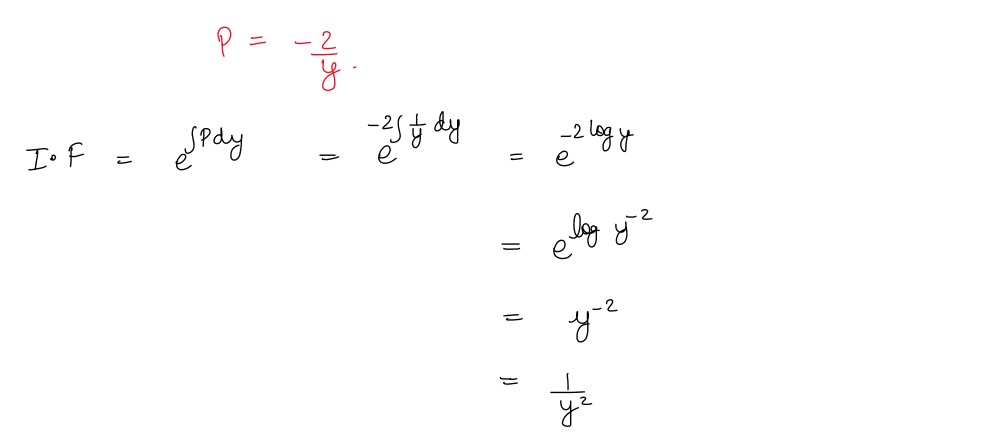 P = -2/y.
I.F = e^∫Pdy = e^-2∫1/y dy = e^-2 log y
= e^log y^-2
= y^-2
= 1/y^2